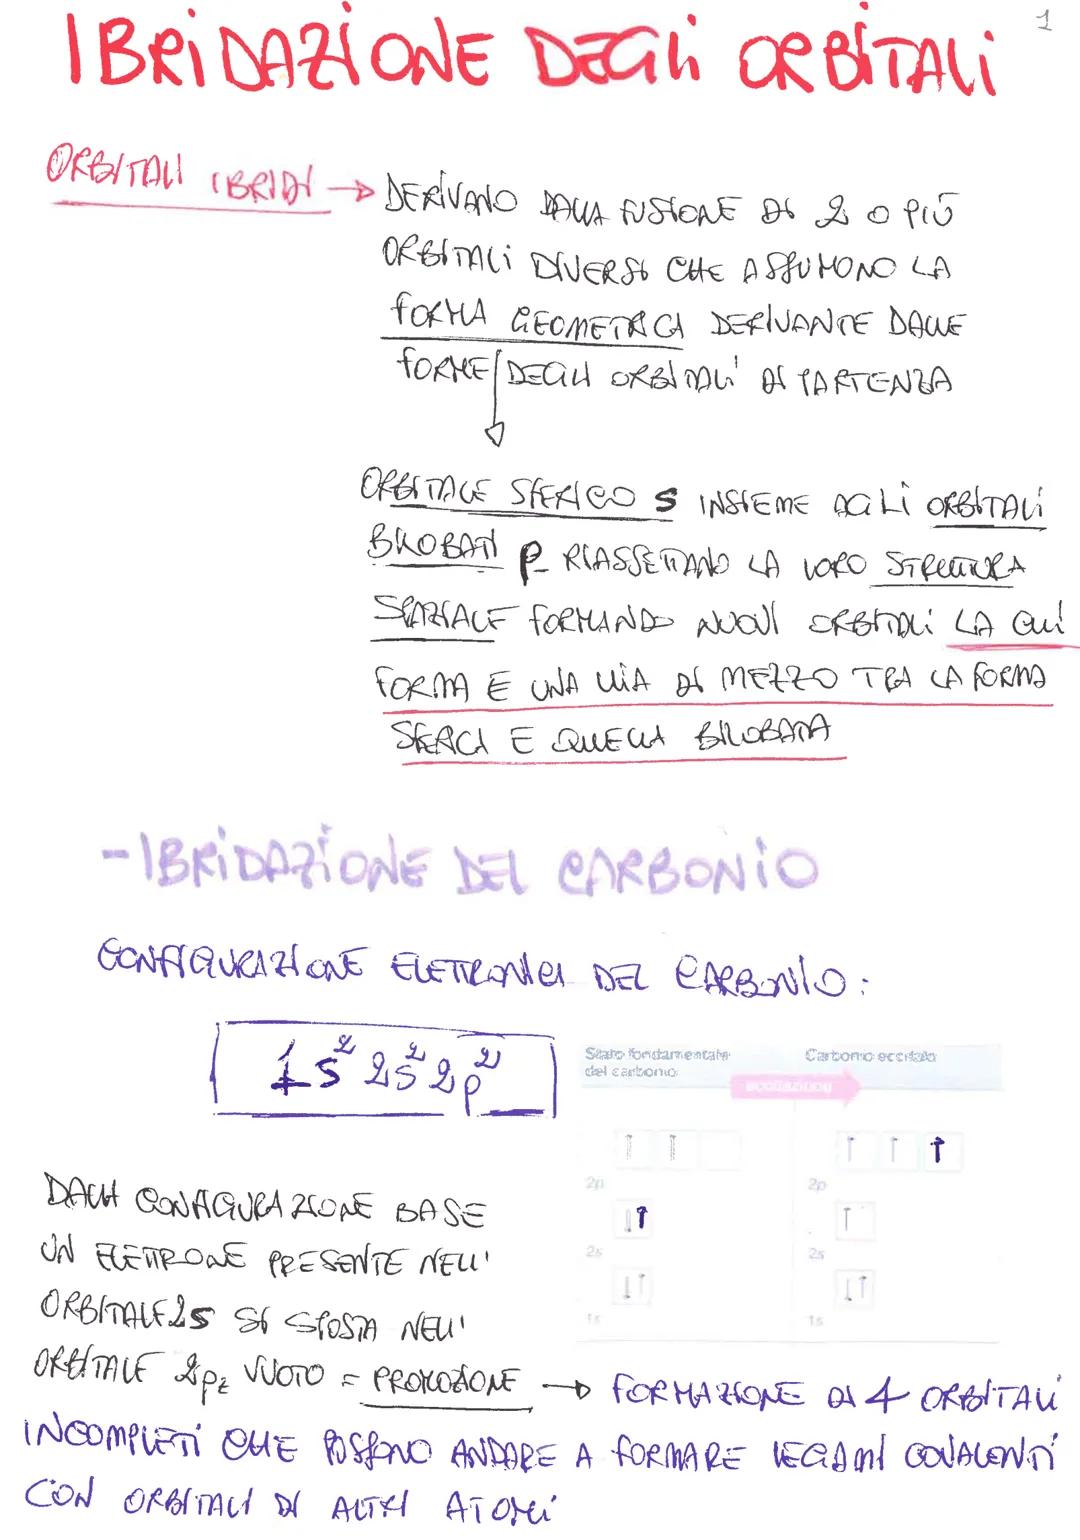 1
IBRIDAZIONE DEGLI ORBITALI
ORBITALI IBRIDI → DERIVANO DALLA FUSIONE DI 2 O PIÙ
ORBITALI DIVERSI CHE ASSUMONO LA
FORMA GEOMETRICA DERIVANTE DALLE
FORME DEGLI ORBITALI DI PARTENZA
ORBITALE SFERICO S INSIEME AGLI ORBITALI
BILOBATI P RIASSETTANO LA LORO STRUTTURA
SPAZIALE FORMANDO NUOVI ORBITALI LA CUI
FORMA E UNA VIA DI MEZZO TRA LA FORMA
SFERICA E QUELLA BILOBATA
- IBRIDAZIONE DEL CARBONIO
CONFIGURAZIONE ELETTRONICA DEL CARBONIO:
1s² 2s² 2p²
Stato fondamentale
del carbonio
Carbonio eccitato
eccitazione
2p
2p
2s
2s
1s
1s
DALLA CONFIGURAZIONE BASE
UN ELETTRONE PRESENTE NELL'
ORBITALE 2S SI SPOSTA NELL'
ORBITALE 2pz VUOTO = PROMOZIONE → FORMAZIONE DI 4 ORBITALI
INCOMPLETI CHE POSSONO ANDARE A FORMARE LEGAMI COVALENTI
CON ORBITALI DI ALTRI ATOMI